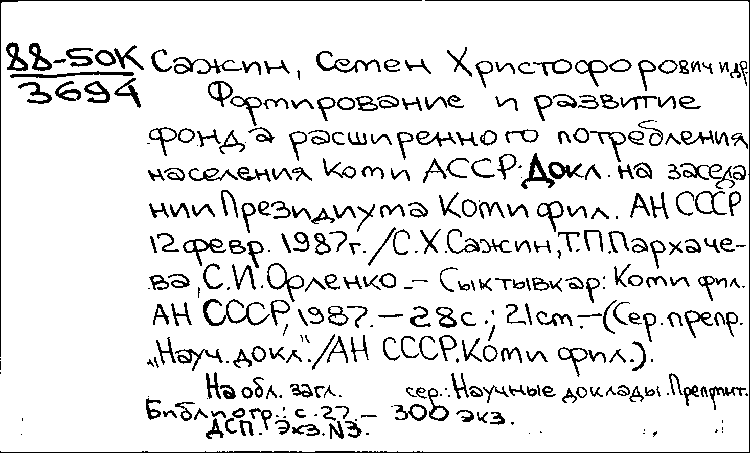 88-50К Сажин, Семен Христофорович и др
3694 Формирование и развитие
фонда расширенного потребления
населения Коми АССР: Докл. на заседа
нии Президиума Коми фил. АН СССР
12 февр. 1987г. / С.Х.Сажин, Т.П.Пархаче-
ва, С.И.Орленко. - Сыктывкар: Коми фил.
АН СССР, 1987. - 28с.; 21см. - (Сер. препр.
„Науч. докл." / АН СССР. Коми фил.).
На обл. загл. сер.: Научные доклады. Препринт.
Библиогр.: с. 27. - 300 экз.
ДСП. Экз. N3.